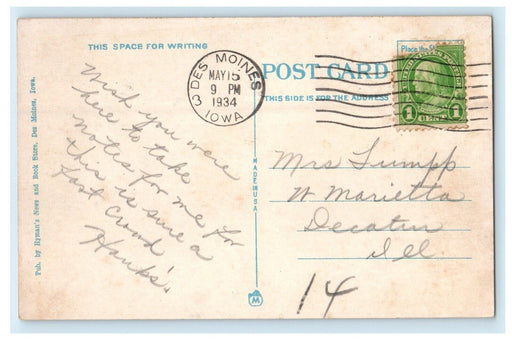 THIS SPACE FOR WRITING
Wish you were
here to take
notes for me for
this is sure a
fast crowd
Hanks'.
Pub. by Hyman's News and Book Store, Des Moines, Iowa.
DES MOINES
3
MAY 15
9 PM
1934
IOWA
POST CARD
Place the
THIS SIDE IS FOR THE ADDRESS
1 1
MADE IN USA
M
Mrs Tumpp
W Marietta
Decatur
Ill.
14